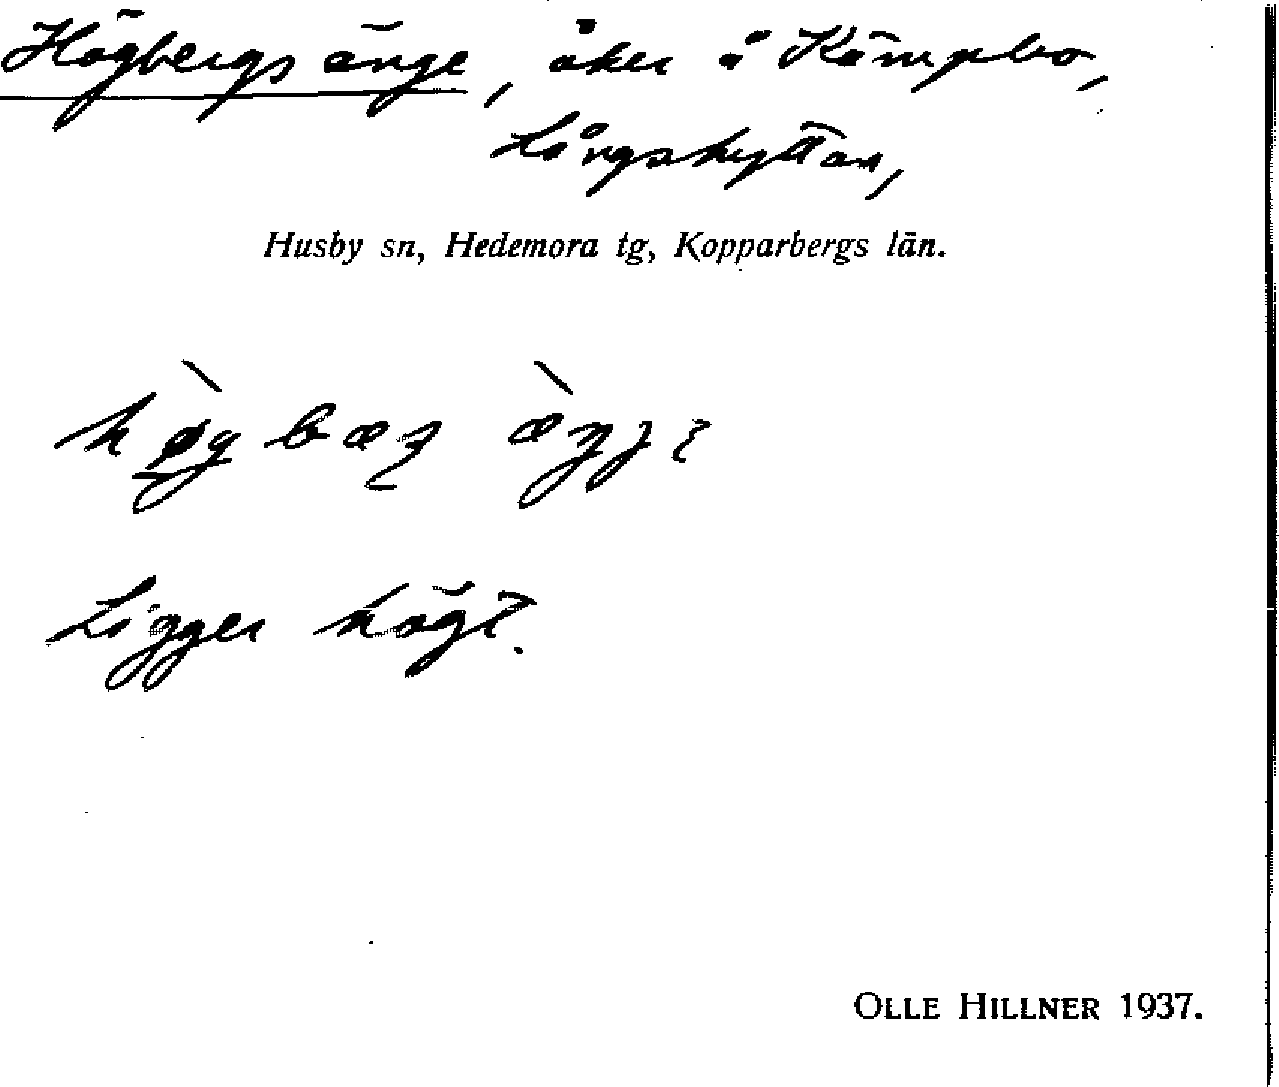 Högbergsänge, åker å Kämpbo,
Långshyttan,
Husby sn, Hedemora tg, Kopparbergs län.
Ligger högt.
OLLE HILLNER 1937.